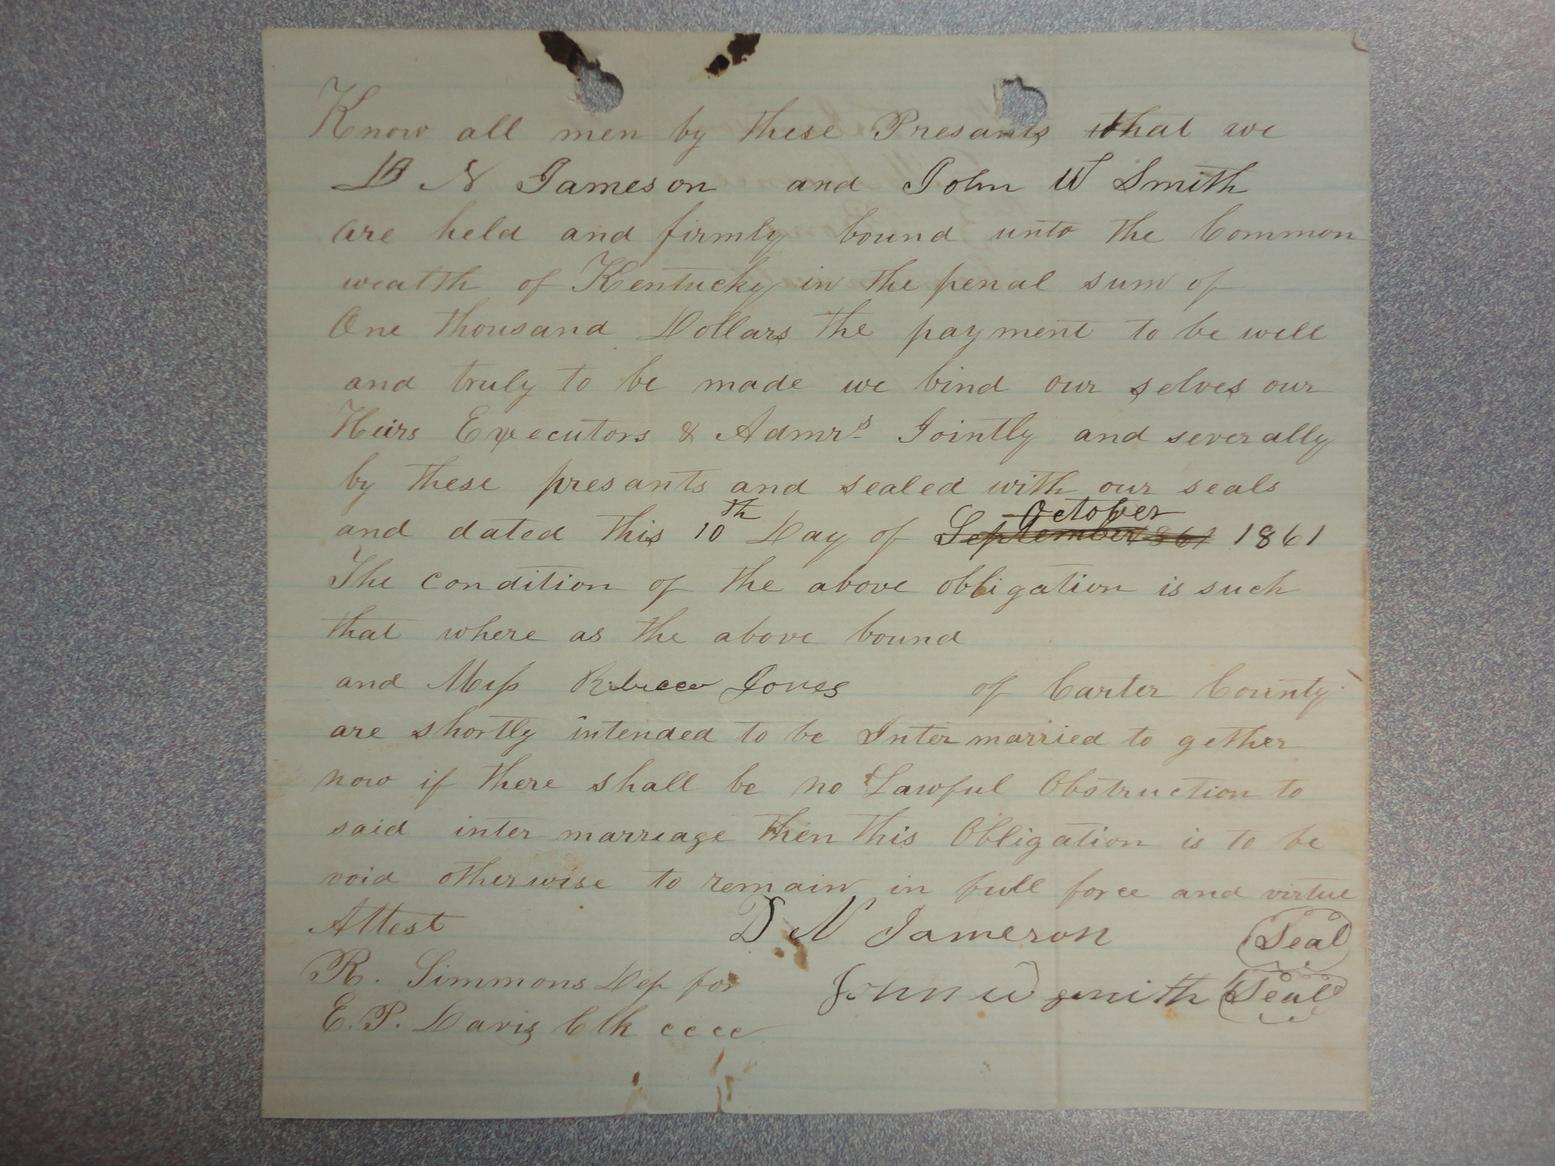 Know all men by these Presants that we
D N Jameson and John W Smith
are held and firmly bound unto the Common
wealth of Kentucky in the penal sum of
One thousand Dollars the payment to be well
and truly to be made we bind our selves our
Heirs Executors & Admrs Jointly and severally
by these presants and sealed with our seals
and dated this 10th Day of October 1861
The condition of the above obligation is such
that where as the above bound
and Miss Rebecca Jones of Carter County
are shortly intended to be Inter married to gether
now if there shall be no Lawful Obstruction to
said inter marriage then this Obligation is to be
void otherwise to remain in full force and virtue
Attest D N Jameson Seal
R. Simmons Dep for John W Smith Seal
E. P. Davis Clk cccc